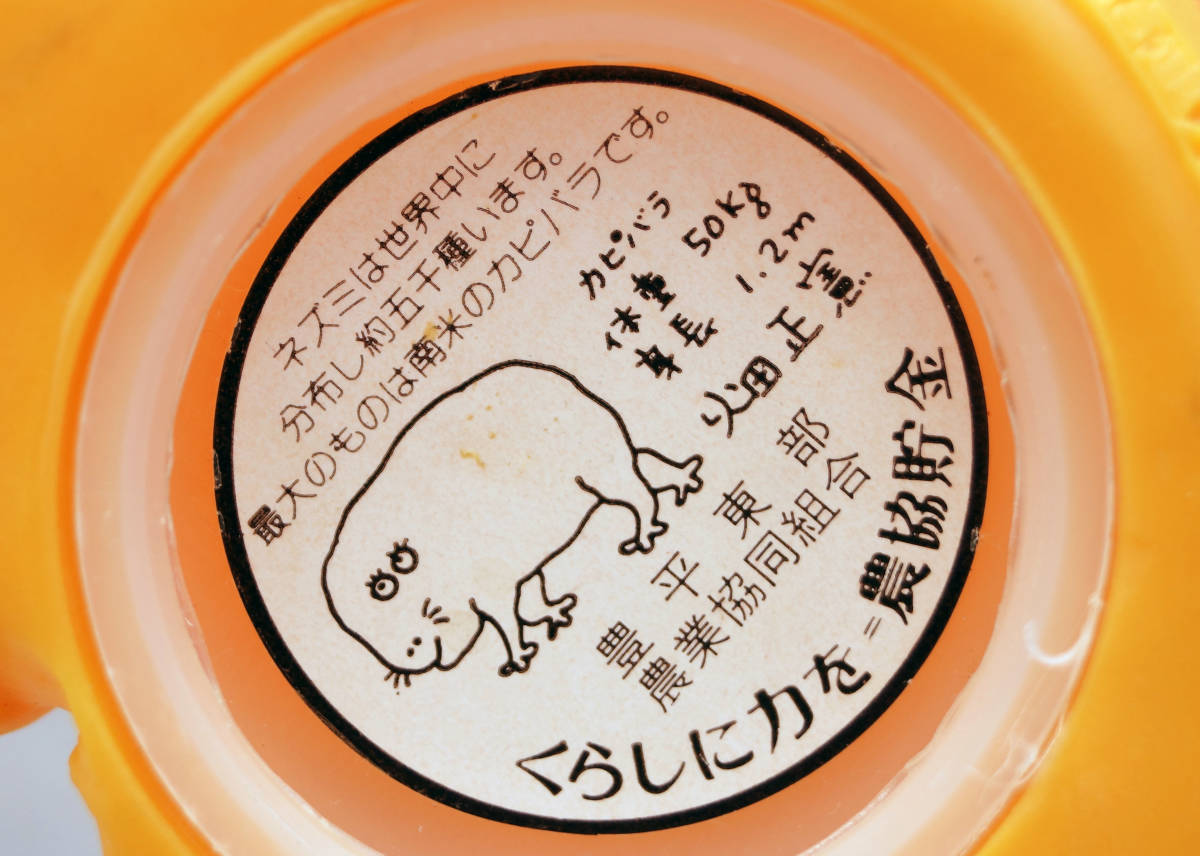 ネズミは世界中に
分布し約五千種います。
最大のものは南米のカピバラです。
カピバラ
体重 50kg
身長 1.2m
畑正憲
豊平東部
農業協同組合
くらしに力を=農協貯金